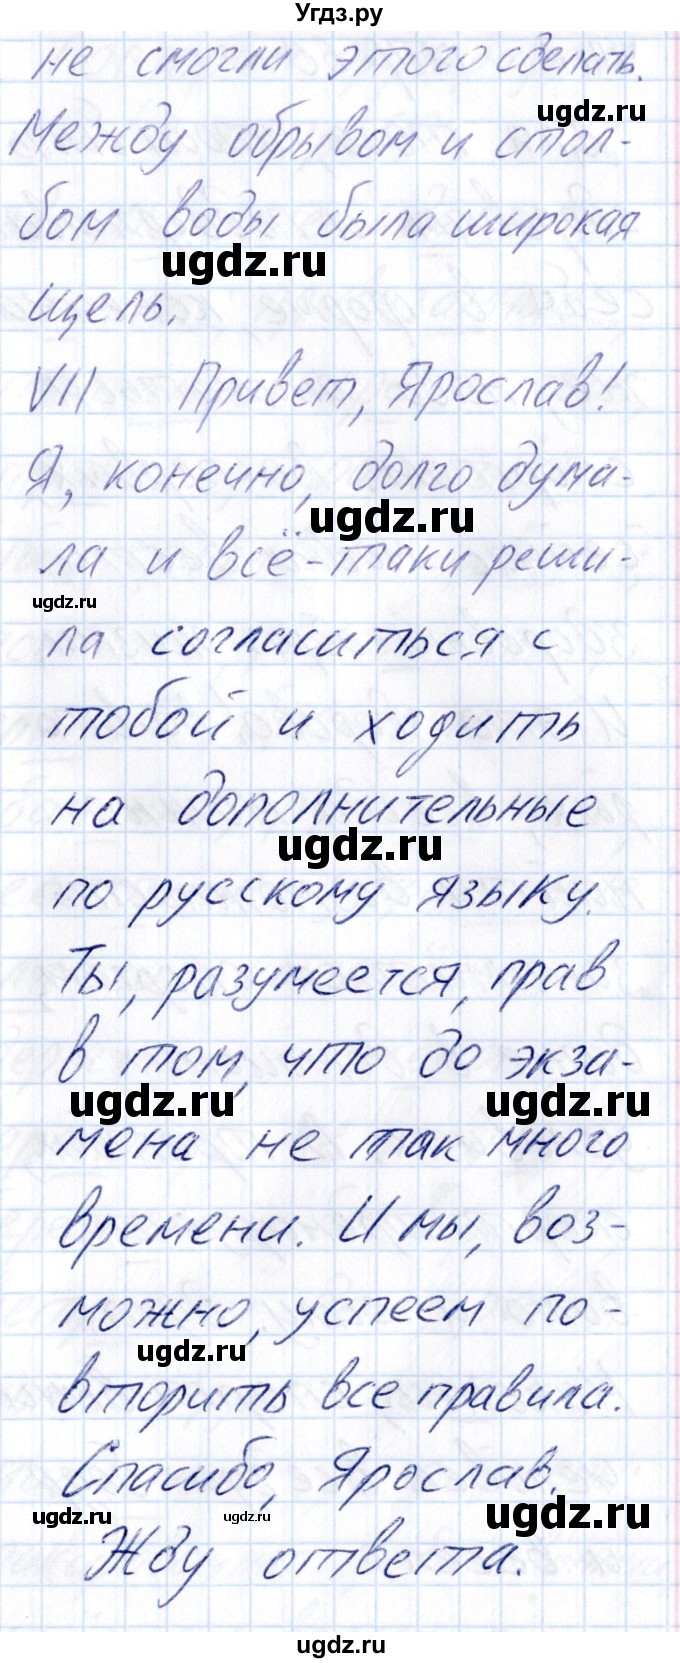 Угдз.ру
не смогли этого сделать.
ugdz.ru
Между обрывом и стол-
бом воды была широкая
ugdz.ru
щель.
VII Привет, Ярослав!
Я, конечно, долго дума-
ugdz.ru
ла и всё-таки реши-
ugdz.ru
ла согласиться с
тобой и ходить
на дополнительные
ugdz.ru
по русскому языку.
Ты, разумеется, прав
в том, что до экза-
ugdz.ru ugdz.ru
мена не так много
времени. И мы, воз-
можно, успеем по-
ugdz.ru
вторить все правила.
Спасибо, Ярослав.
ugdz.ru ugdz.ru ugdz.ru
Жду ответа.
ugdz.ru